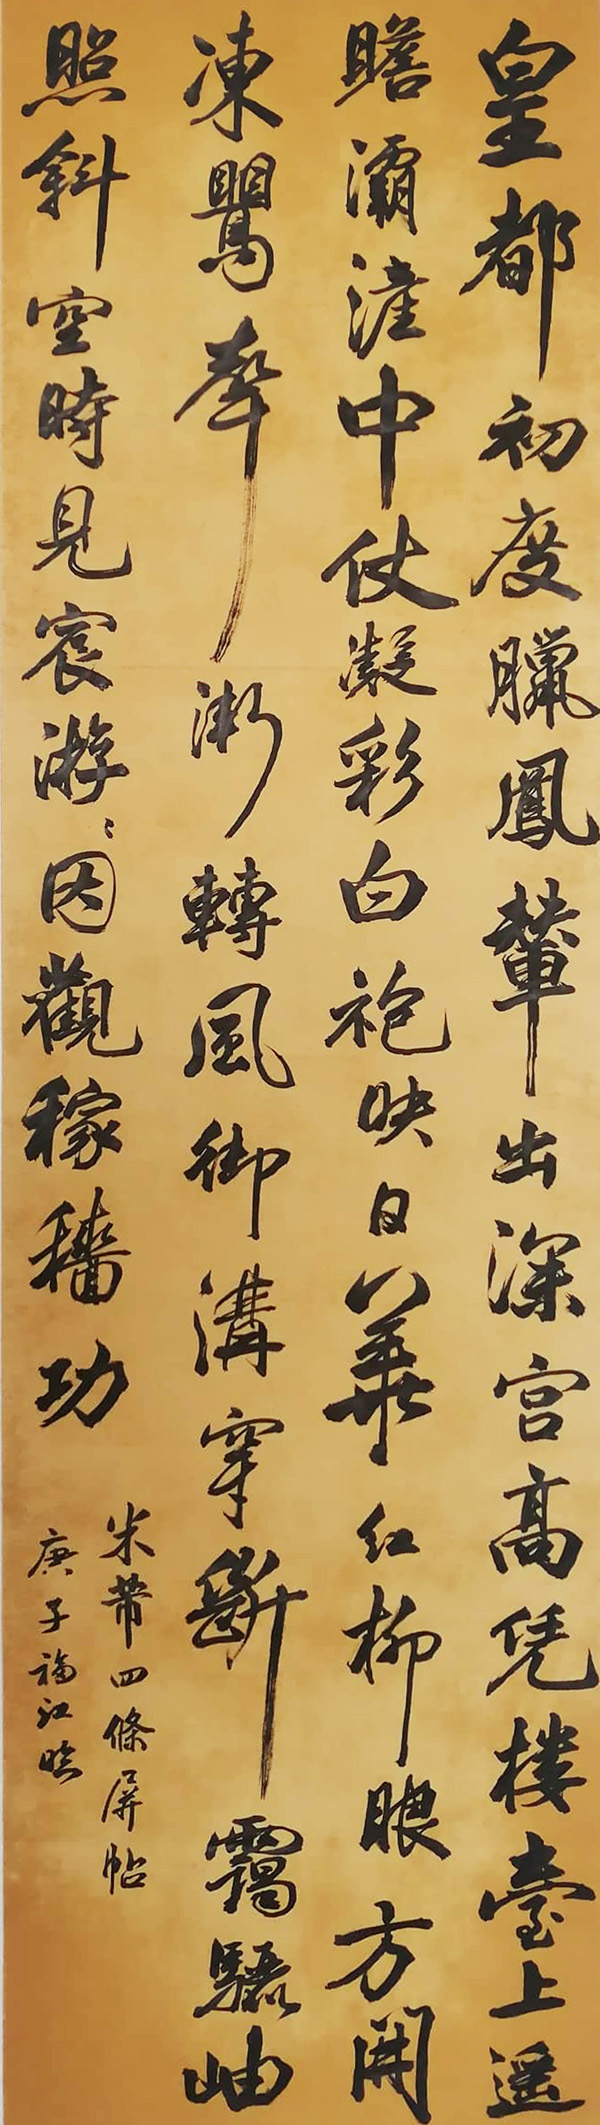 皇都初度臘鳳輦出深宮高凭樓臺上遥
瞻灞滻中仗凝彩白袍映日華紅柳眼方開
凍鸎聲漸轉風御溝穿斷靄驪岫
照斜空時見宸游〻因觀稼穡功
米芾四條屏帖
庚子福江臨